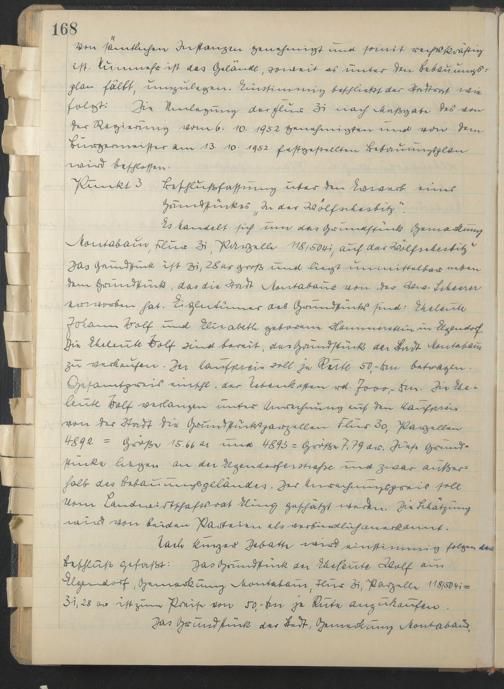 168
von sämtlichen Instanzen genehmigt und somit rechtskräftig
ist. Nunmehr ist das Gelände, soweit es unter den Bebauungs-
plan fällt, umzulegen. Einstimmig beschließt der Stadtrat wie
folgt: Die Umlegung der Flur 31 nach Maßgabe des von
der Regierung vom 6. 10. 1952 genehmigten und von dem
Bürgermeister am 13. 10. 1952 festgestellten Bebauungsplan
wird beschlossen.
Punkt 3 Beschlußfassung über den Erwerb eines
Grundstückes "In der
Es handelt sich um das Grundstück Gemarkung
Montabaur, Flur 31, Parzelle 118/504i, auf der
Das Grundstück ist 31,28 ar groß und liegt unmittelbar neben
dem Grundstück, das die Stadt Montabaur von der Scherer
erworben hat. Eigentümer des Grundstücks sind: Eheleute
Johann Wolf und Elisabeth geborene in Elgendorf.
Die Eheleute Wolf sind bereit, das Grundstück der Stadt Montabaur
zu verkaufen. Der Kaufpreis soll je Rute 50,- DM betragen.
Gesamtpreis einschl. der Nebenkosten rd. DM. Die Ehe-
leute Wolf verlangen unter Anrechnung auf den Kaufpreis
von der Stadt die Grundstücksparzellen Flur 30, Parzellen
4892 = Größe 15.66 ar und 4893 = Größe 7.79 ar. Diese Grund-
stücke liegen an der Elgendorferstraße und zwar außer-
halb des Bebauungsgeländes. Der Anrechnungspreis soll
vom Landwirtschaftsrat geschätzt werden. Die Schätzung
wird von beiden Parteien als verbindlich anerkannt.
Nach kurzer Debatte wird einstimmig folgender
Beschluß gefaßt: Das Grundstück der Eheleute Wolf aus
Elgendorf, Gemarkung Montabaur, Flur 31, Parzelle 118/504i =
31,28 ar ist zum Preise von 50,- DM je Rute anzukaufen.
Das Grundstück der Stadt, Gemarkung Montabaur,